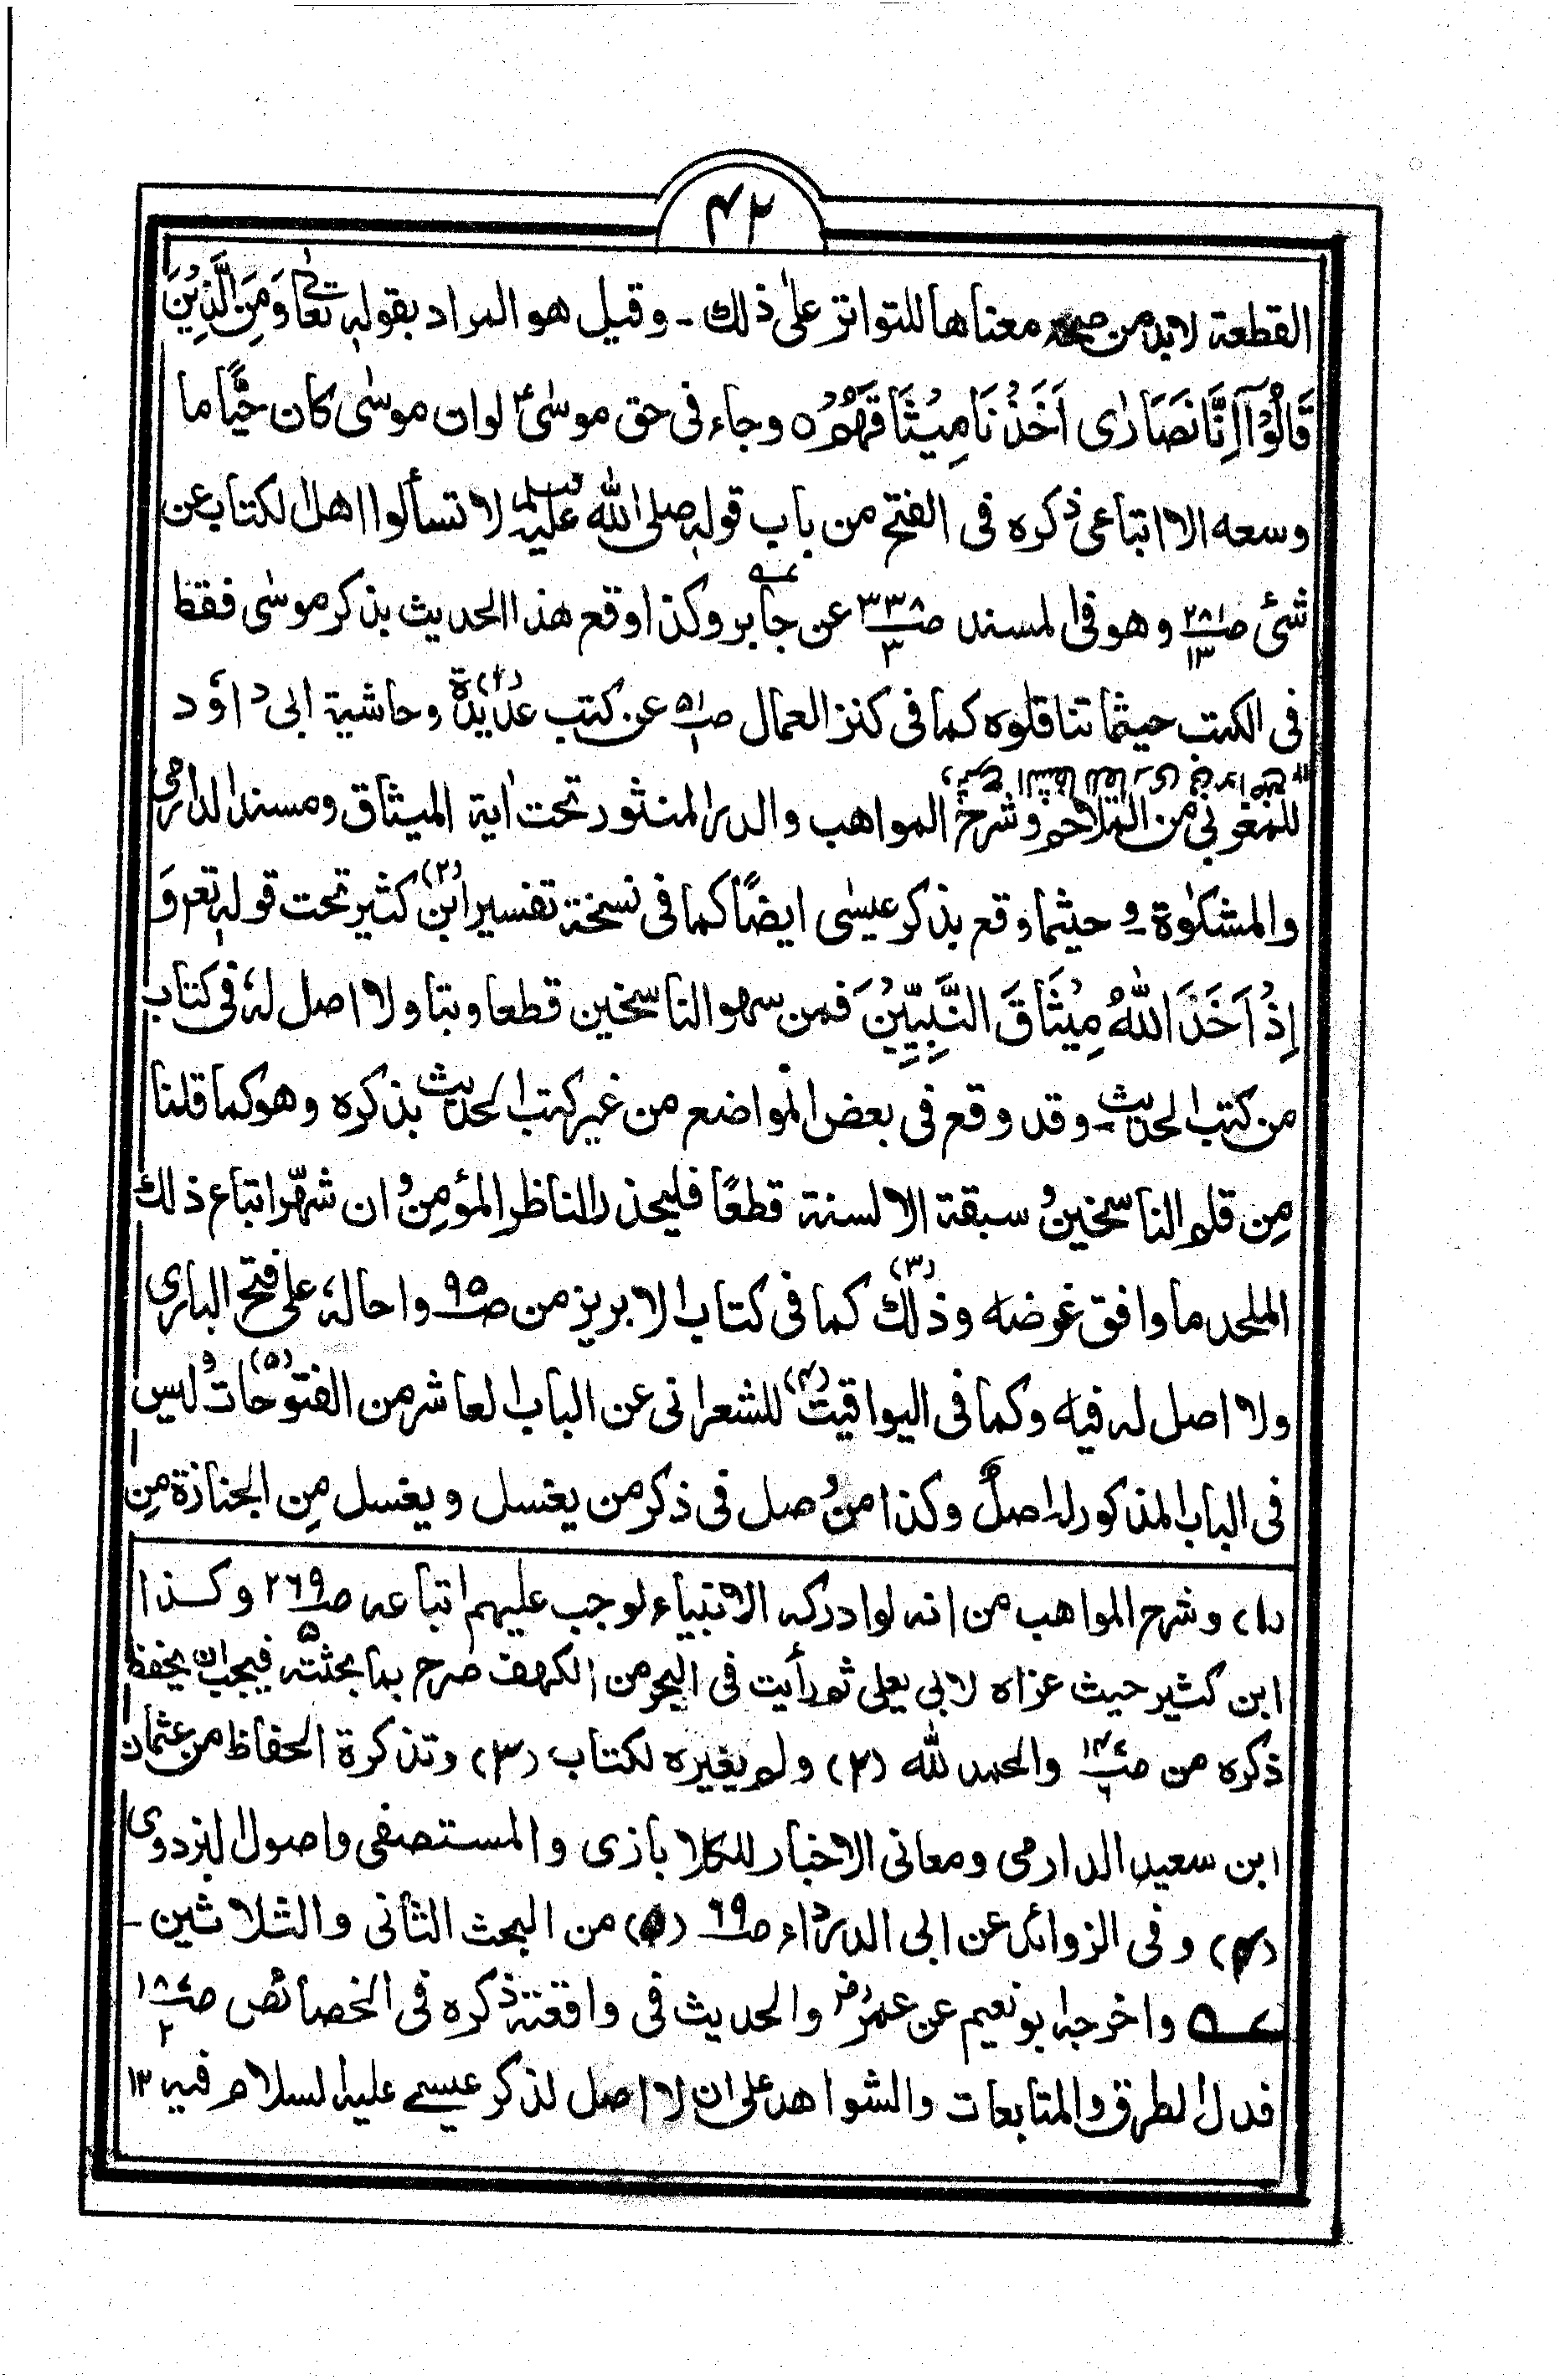 ۴۲
القطعة لابد من صحة معناها للتواتر علىٰ ذلك ـ وقيل هو المراد بقوله تعالىٰ وَمِنَ الَّذِيْنَ
قَالُوْٓا اِنَّا نَصَارٰى اَخَذْنَا مِيْثَاقَهُمْ ٥ وجاء فى حق موسىٰؑ لوان موسٰى كان حيًّا ما
وسعه الا اتباعى ذكره فى الفتح من باب قوله صلى الله عليه وسلم لا تسألوا اهل الكتاب عن
شئ صـ ٢٨١/١٣ وهو فى المسند صـ ٣٣٨/٣ عن جابر وكذا وقع هذا الحديث بذكر موسٰى فقط
فى الكتب حيثما تناقلوه كما فى كنز العمال صـ ٥١/١ عن كتب عديدة (١) وحاشية ابى داؤد
للمغربى من الملاحم وشرح المواهب والدر المنثور تحت اٰية الميثاق ومسند الدارمى
والمشكوٰة ـ و حيثما وقع بذكر عيسٰى ايضًا كما فى نسخة تفسير ابن (٢) كثير تحت قوله تعـ وَ
اِذْ اَخَذَ اللّٰهُ مِيْثَاقَ النَّبِيِّيْنَ فمن سهو الناسخين قطعا وبتا ولا اصل لهٗ فى كتاب
من كتب الحديث ـ وقد وقع فى بعض المواضع من غير كتب الحديث بذكره وهو كما قلنا
مِن قلم الناسخين و سبقة الالسنة قطعًا فليحذر الناظر المؤمن و ان شهّر اتباع ذلك
الملحد ما وافق غرضه وذلك (٣) كما فى كتاب الابريز من صـ ٩٥ واحالهٗ على فتح البارى
ولا اصل له فيه وكما فى اليواقيت (٤) للشعرانى عن الباب العاشر من الفتوحات (٥) و ليس
فى الباب المذكور له اصلٌ وكذا من و صل فى ذكر من يغسل و يغسل مِن الجنازة مِن
(١) و شرح المواهب من انه لو ادركه الانبياء لوجب عليهم اتباعه صـ ٢٦٩/٥ وكذا
ابن كثير حيث عزاه لابى يعلى ثم رأيت فى البحر من الكهف صرح بما بحثته فيجب ان يحفظ
ذكره من صـ ١٤٧/٦ والحمد لله (٢) ولم يغيره لكتاب (٣) وتذكرة الحفاظ من عثمان
ابن سعيد الدارمى ومعانى الاخبار للكلاباذى والمستصفى واصول البزدوى
(٤) وفى الزوائد عن ابى الدرداء صـ ٦٩ (٥) من البحث الثانى والثلاثين ـ
واخرجه ابونعيم عن عمرؓ والحديث فى واقعته ذكره فى الخصائص صـ ١٨٧/٢
فدل الطرق والمتابعات والشواهد على ان لا اصل لذكر عيسے عليه السلام فيه ١٢